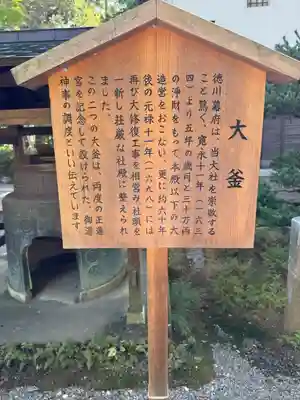 大釜
徳川幕府は、当大社を崇敬する
こと篤く、寛永十一年(一六三
四)より五年の歳司と三十万両
の浄財をもって本殿以下の大
造営をおこない、更に約六十年
後の元禄十一年(一六九八)には
再び大修復工事を相営み社頭を
一新し荘厳な社殿に整えられ
ました。
この二つの大釜は、両度の正遷
宮を記念して設けられた、御湯
神事の調度といい伝えています